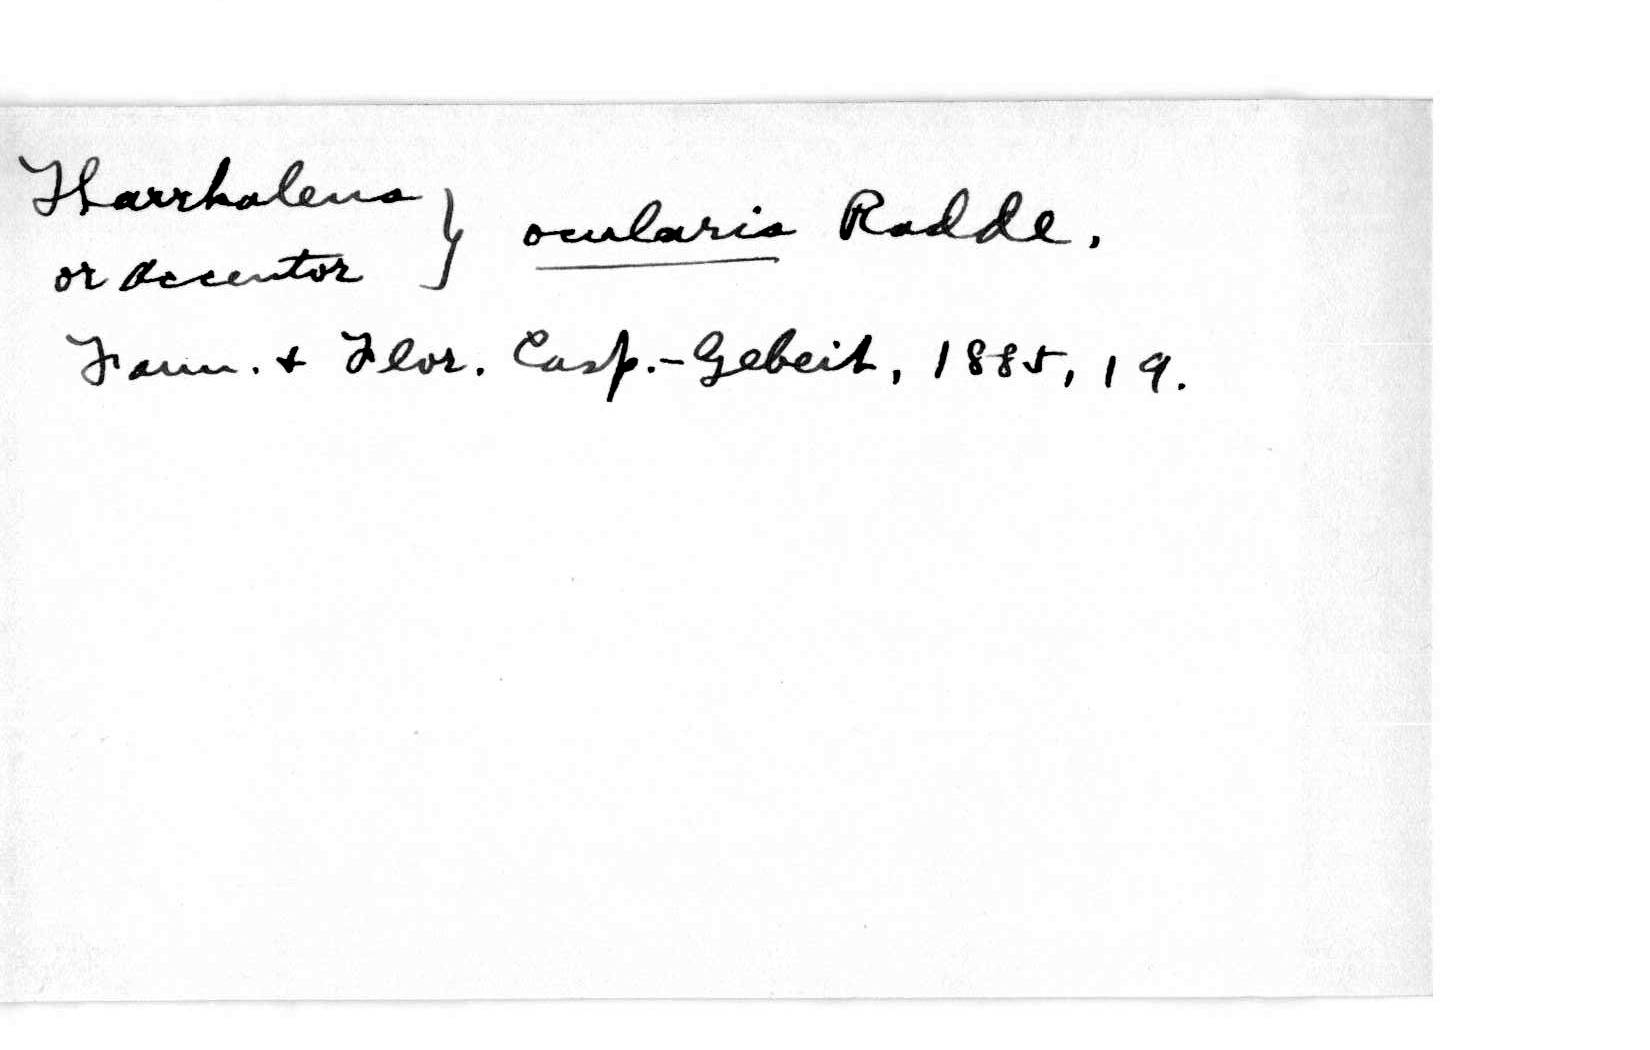 Tharrhaleus
or Accentor } ocularis Radde,
Faun. + Flor. Casp.-Gebeit, 1885, 19.